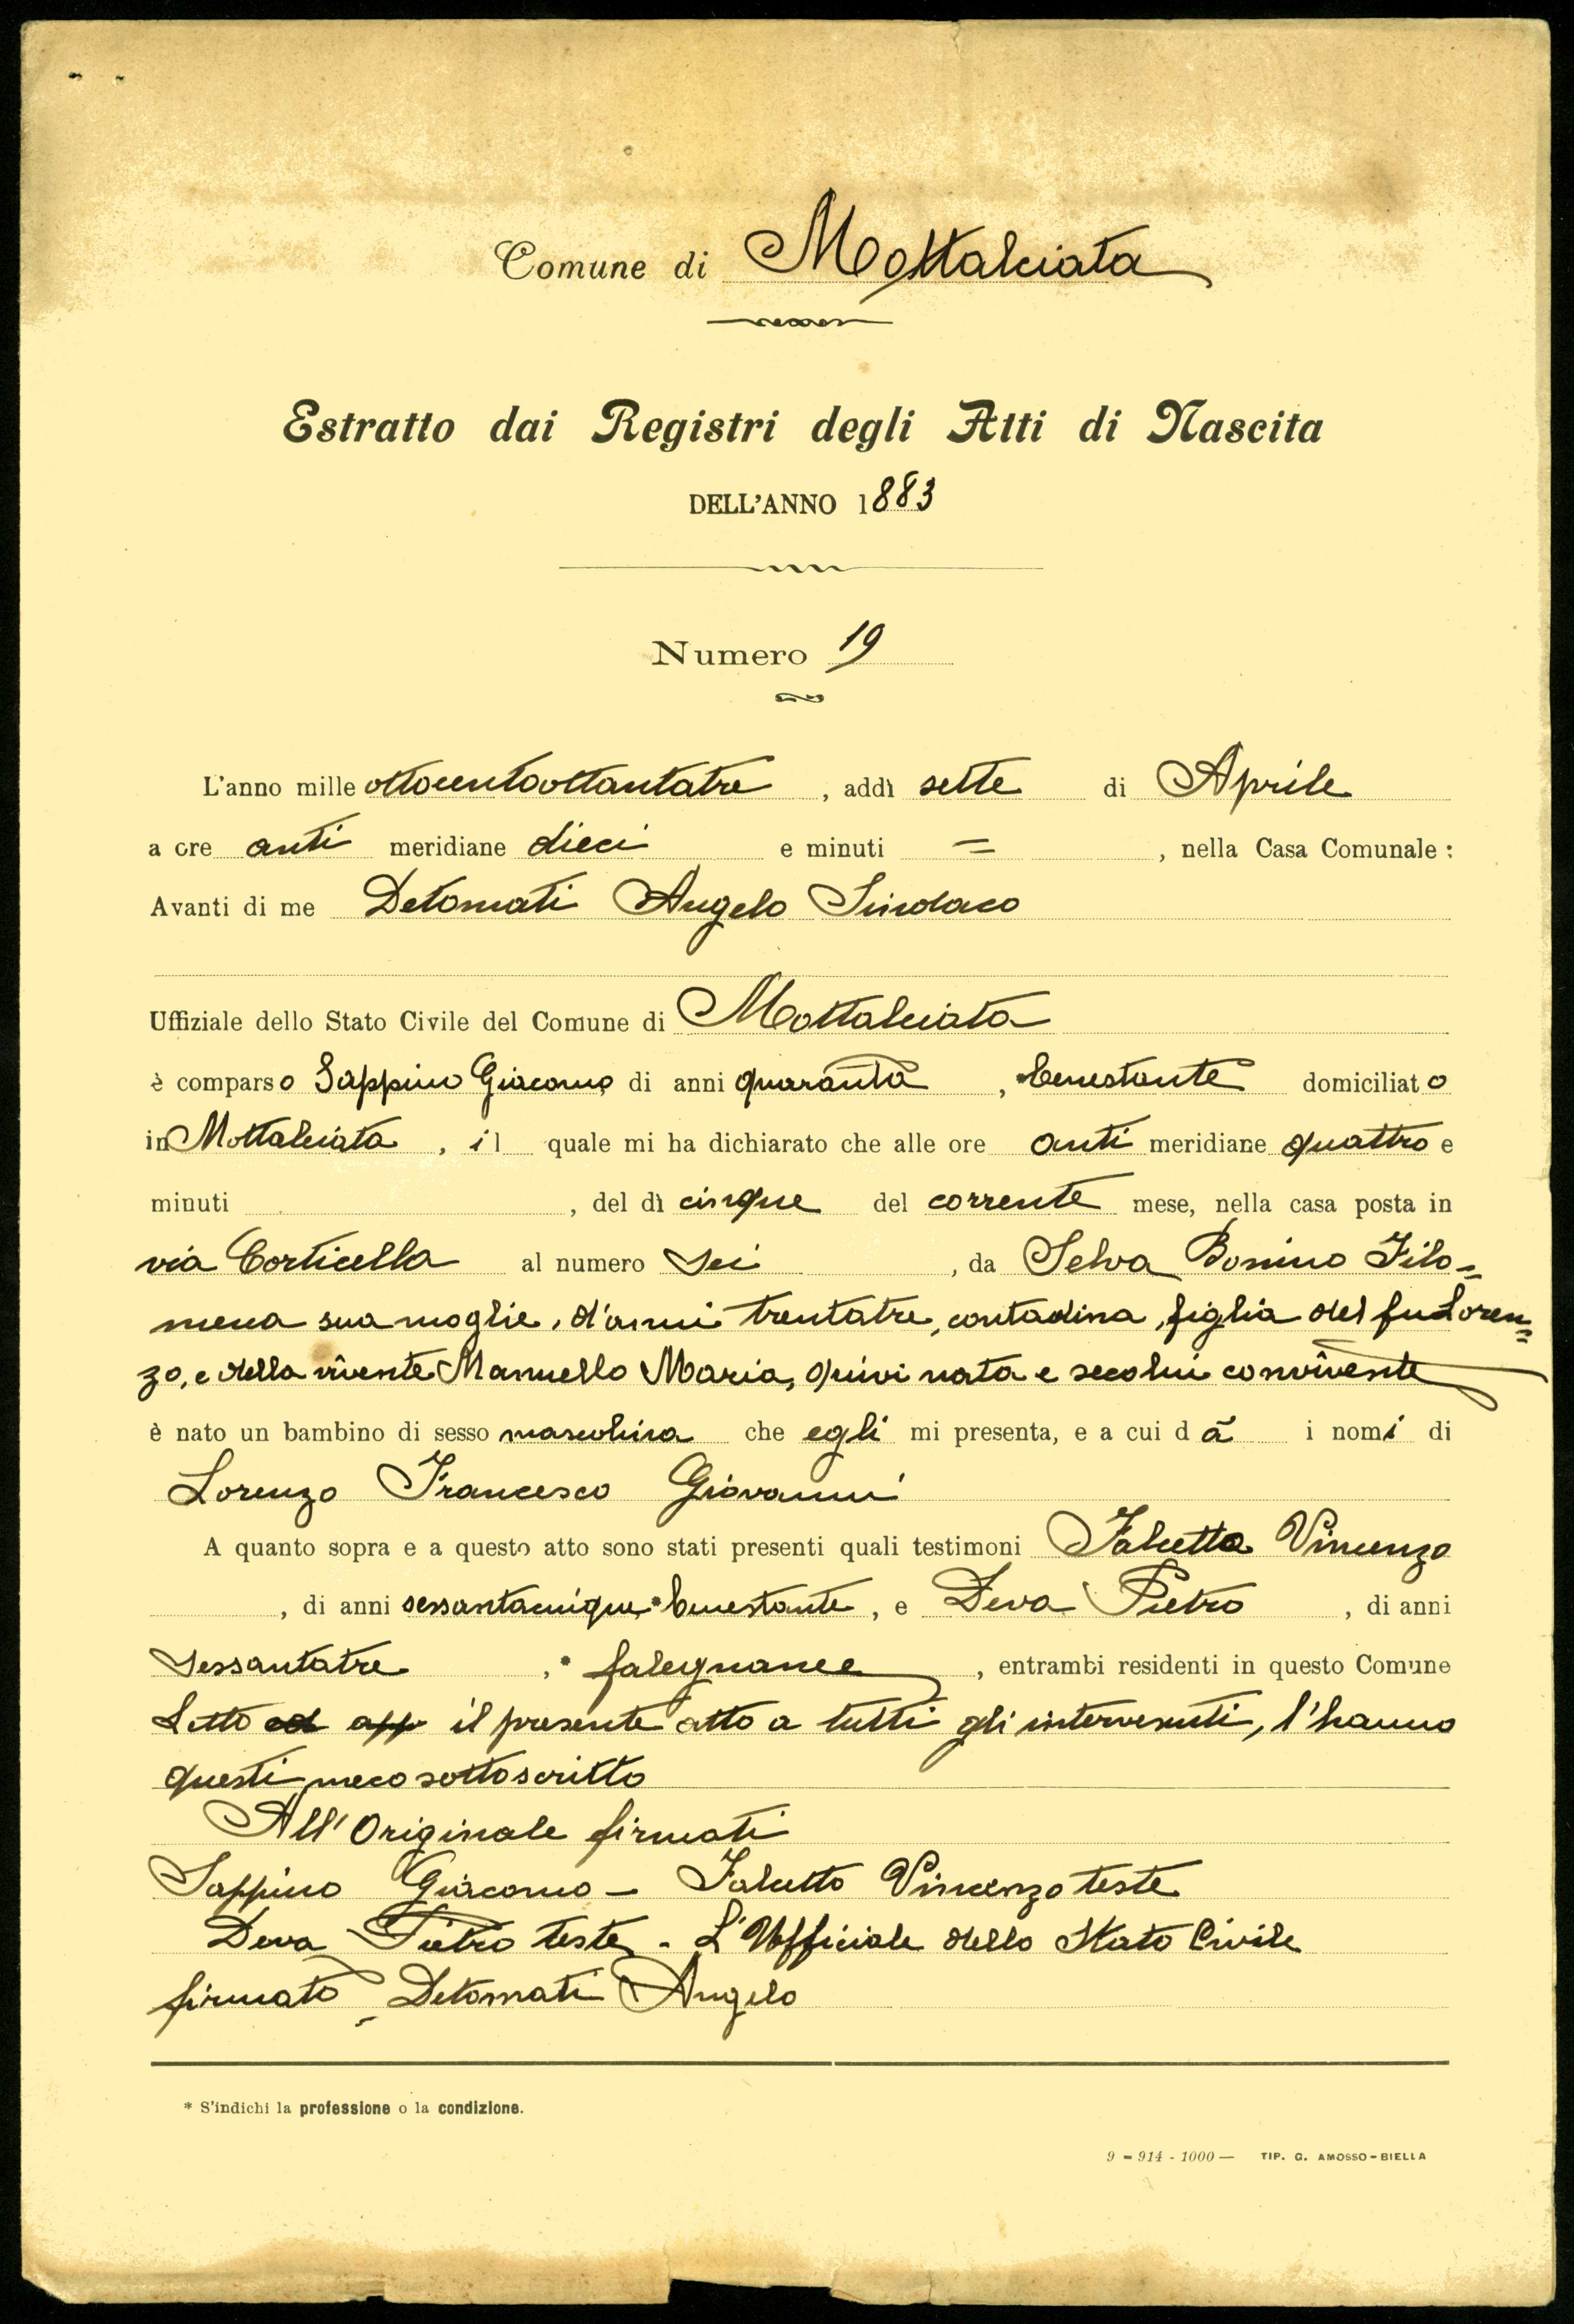 Comune di Mottalciata
Estratto dai Registri degli Atti di Nascita
DELL'ANNO 1883
Numero 19
L'anno mille ottocentoottantatre, addì sette di Aprile
a ore anti meridiane dieci e minuti =, nella Casa Comunale:
Avanti di me Detomati Angelo Sindaco
Uffiziale dello Stato Civile del Comune di Mottalciata
è comparso Sappino Giacomo di anni quaranta, *benestante domiciliato
in Mottalciata, il quale mi ha dichiarato che alle ore anti meridiane quattro e
minuti , del dì cinque del corrente mese, nella casa posta in
via Corticella al numero sei, da Selva Bonino Filo=
mena sua moglie, d'anni trentatre, contadina, figlia del fu Loren=
zo, e della vivente Manuello Maria, quivi nata e secolui convivente
è nato un bambino di sesso mascolino che egli mi presenta, e a cui dà i nomi di
Lorenzo Francesco Giovanni
A quanto sopra e a questo atto sono stati presenti quali testimoni Falcetto Vincenzo
, di anni sessantacinque *benestante, e Deva Pietro, di anni
sessantatre, * falegname, entrambi residenti in questo Comune
Letto il presente atto a tutti gli intervenuti, l'hanno
questi meco sottoscritto
All'Originale firmati
Sappino Giacomo - Falcetto Vincenzo teste
Deva Pietro teste - L'Ufficiale dello Stato Civile
firmato Detomati Angelo
* S'indichi la professione o la condizione.
9 - 914 - 1000 — TIP. G. AMOSSO - BIELLA